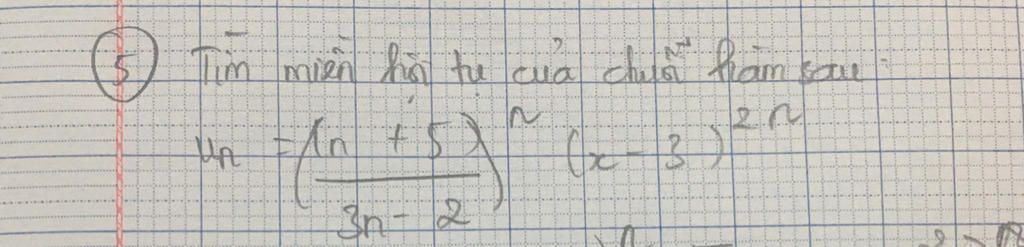 5 Tìm miền hội tụ của chuỗi hàm sau:
u_n = ((n + 5)/(3n - 2))^n (x - 3)^{2n}